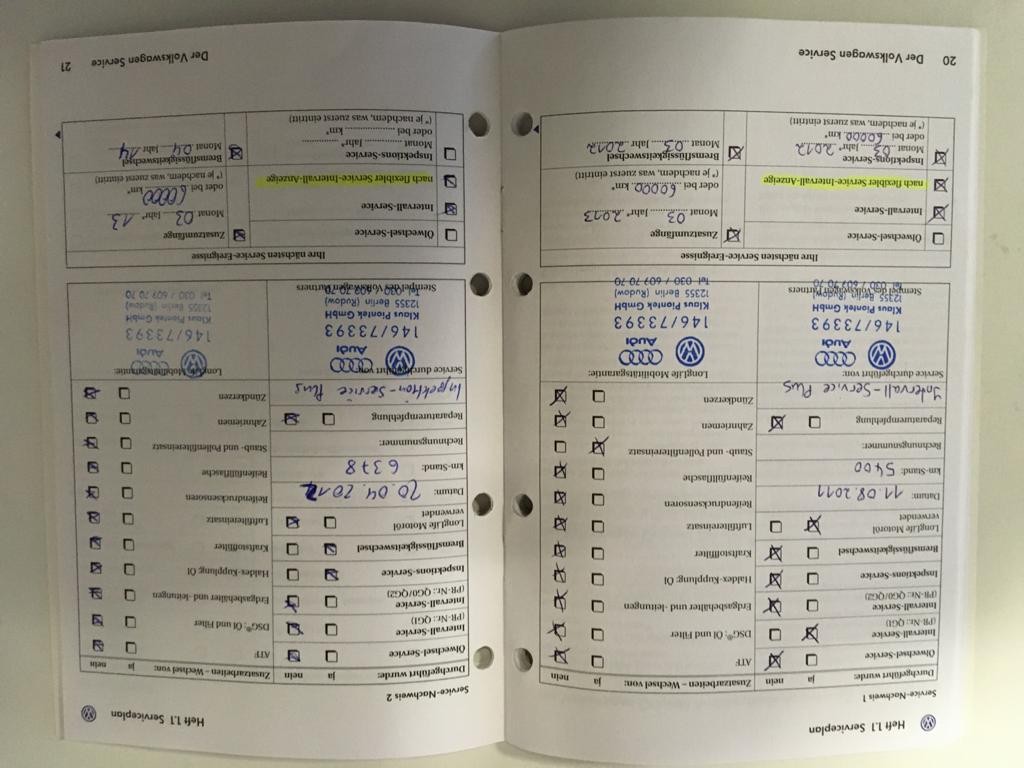 Heft 1.1 Serviceplan
Service-Nachweis 1
Durchgeführt wurde: ja nein
Ölwechsel-Service
Intervall-Service
(PR-Nr.: QG1)
Intervall-Service
(PR-Nr.: QG0/QG2)
Inspektions-Service
Bremsflüssigkeitswechsel
LongLife Motoröl
verwendet
Datum: 11.08.2011
km-Stand: 5400
Rechnungsnummer:
Reparaturempfehlung
Intervall-Service Plus
Service durchgeführt von:
Audi
146/73393
Klaus Piontek GmbH
12355 Berlin (Rudow)
Tel. 030 / 609 70 70
Stempel des Volkswagen Partners
Zusatzarbeiten – Wechsel von: ja nein
ATF
DSG®: Öl und Filter
Erdgasbehälter und -leitungen
Haldex-Kupplung: Öl
Kraftstofffilter
Luftfiltereinsatz
Reifendrucksensoren
Reifenfüllflasche
Staub- und Pollenfiltereinsatz
Zahnriemen
Zündkerzen
LongLife Mobilitätsgarantie:
Audi
146/73393
Klaus Piontek GmbH
12355 Berlin (Rudow)
Tel. 030 / 609 70 70
Ihre nächsten Service-Ereignisse
Ölwechsel-Service
Intervall-Service
nach flexibler Service-Intervall-Anzeige
Inspektions-Service
Monat 03 Jahr* 2012
oder bei 60000 km*
(*je nachdem, was zuerst eintritt)
Zusatzumfänge
Monat 03 Jahr* 2013
oder bei 60000 km*
(*je nachdem, was zuerst eintritt)
Bremsflüssigkeitswechsel
Monat 03 Jahr 2012
20 Der Volkswagen Service
Heft 1.1 Serviceplan
Service-Nachweis 2
Durchgeführt wurde: ja nein
Ölwechsel-Service
Intervall-Service
(PR-Nr.: QG1)
Intervall-Service
(PR-Nr.: QG0/QG2)
Inspektions-Service
Bremsflüssigkeitswechsel
LongLife Motoröl
verwendet
Datum: 20.04.2012
km-Stand: 6378
Rechnungsnummer:
Reparaturempfehlung
Inspektion-Service Plus
Service durchgeführt von:
Audi
146/73393
Klaus Piontek GmbH
12355 Berlin (Rudow)
Tel. 030 / 609 70 70
Stempel des Volkswagen Partners
Zusatzarbeiten – Wechsel von: ja nein
ATF
DSG®: Öl und Filter
Erdgasbehälter und -leitungen
Haldex-Kupplung: Öl
Kraftstofffilter
Luftfiltereinsatz
Reifendrucksensoren
Reifenfüllflasche
Staub- und Pollenfiltereinsatz
Zahnriemen
Zündkerzen
LongLife Mobilitätsgarantie:
Audi
146/73393
Klaus Piontek GmbH
12355 Berlin (Rudow)
Tel. 030 / 609 70 70
Ihre nächsten Service-Ereignisse
Ölwechsel-Service
Intervall-Service
nach flexibler Service-Intervall-Anzeige
Inspektions-Service
Monat ............ Jahr* ............
oder bei ............ km*
(*je nachdem, was zuerst eintritt)
Zusatzumfänge
Monat 03 Jahr* 13
oder bei 60000 km*
(*je nachdem, was zuerst eintritt)
Bremsflüssigkeitswechsel
Monat 04 Jahr 14
Der Volkswagen Service 21